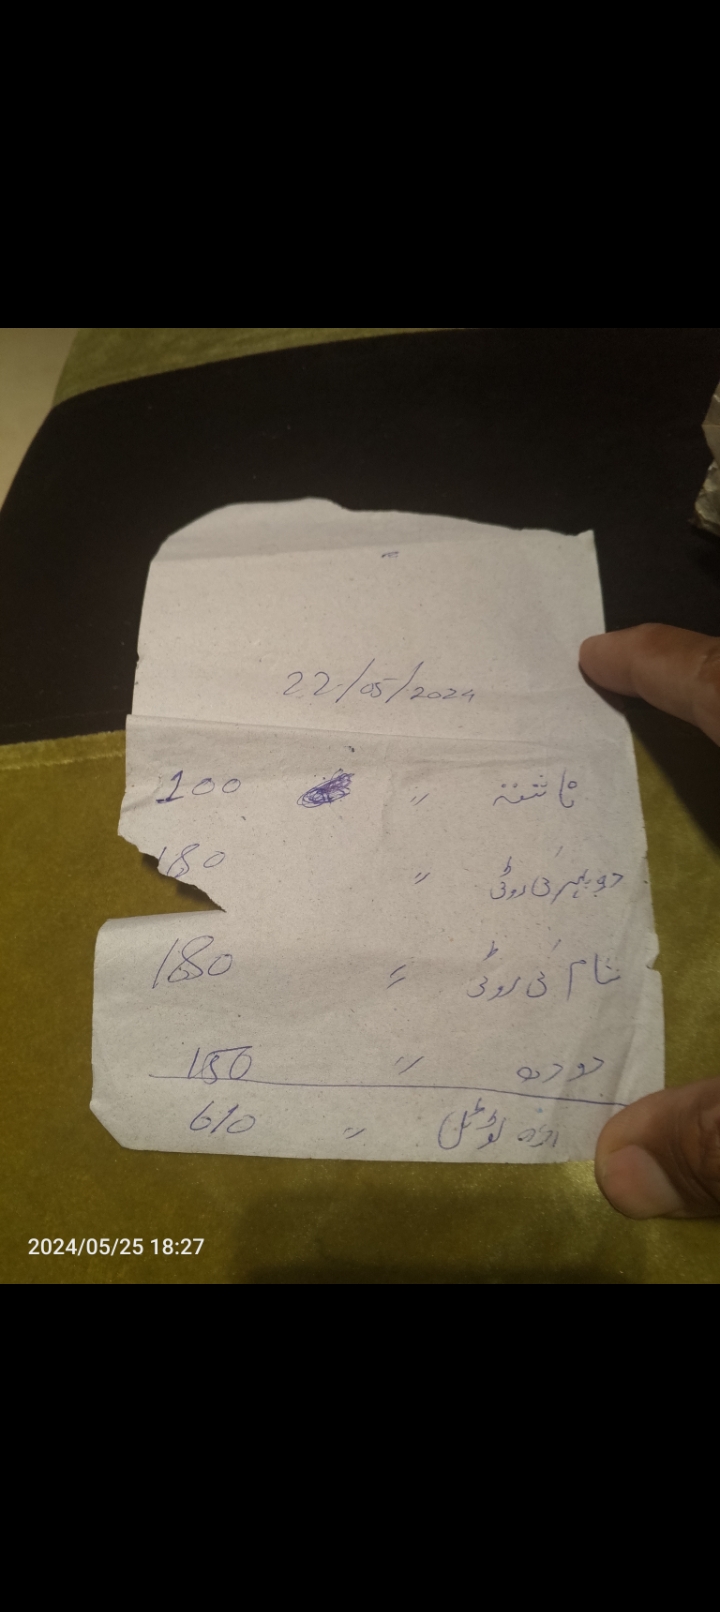 22/05/2024
ناشتہ " 100
دوپہر کی روٹی " 180
شام کی روٹی " 180
دودھ " 150
ٹوٹل " 610
2024/05/25 18:27